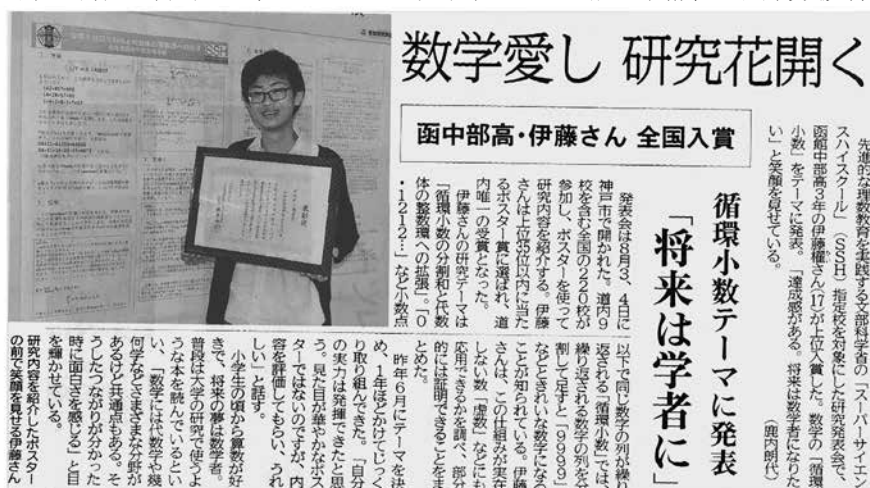 数学愛し 研究花開く
函中部高・伊藤さん 全国入賞
循環小数テーマに発表
「将来は学者に」
先進的な理数教育を実践する文部科学省の「スーパーサイエン
スハイスクール」(SSH)指定校を対象にした研究発表会で、
函館中部高3年の伊藤櫂さん(17)が上位入賞した。数学の「循環
小数」をテーマに発表。「達成感がある。将来は数学者になりた
い」と笑顔を見せている。
(鹿内朗代)
発表会は8月3、4日に
神戸市で開かれた。道内9
校を含む全国の220校が
参加し、ポスターを使って
研究内容を紹介する。伊藤
さんは上位35位以内に当た
るポスター賞に選ばれ、道
内唯一の受賞となった。
伊藤さんの研究テーマは
「循環小数の分割和と代数
体の整数環への拡張」。「0
・1212…」など小数点
以下で同じ数字の列が繰り
返される「循環小数」では、
繰り返される数字の列を分
割して足すと「9999」
などときれいな数字になる
ことが知られている。伊藤
さんは、この仕組みが実在
しない数「虚数」などにも
応用できるかを調べ、部分
的には証明できることをま
とめた。
昨年6月にテーマを決
め、1年ほどかけてじっく
り取り組んできた。「自分
の実力は発揮できたと思
う。見た目が華やかなポス
ターではないのですが、内
容を評価してもらい、うれ
しい」と話す。
小学生の頃から算数が好
きで、将来の夢は数学者。
普段は大学の研究で使うよ
うな本を読んでいるとい
い、「数学には代数学や幾
何学などさまざまな分野が
あるけど共通点もある。そ
うしたつながりが分かった
時に面白さを感じる」と目
を輝かせている。
研究内容を紹介したポスター
の前で笑顔を見せる伊藤さん